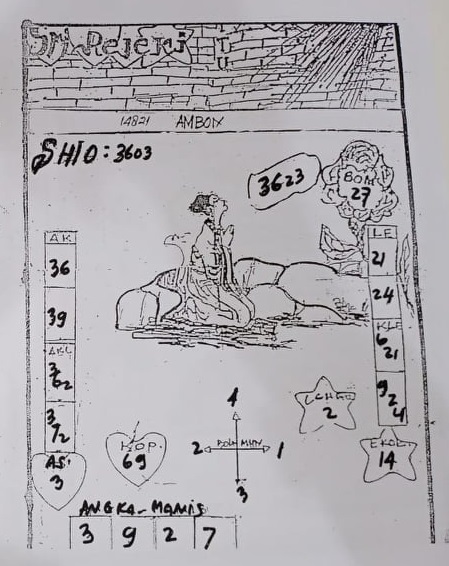 SM Rejeki
ITU
14821 AMBON
SHIO: 3603
3623
BOM
27
AK
36
39
3
62
3
72
AS.
3
LE
21
24
KLE
6
21
9
24
KOP.
69
4
2
1
3
2
EKOR
14
ANGKA-MANIS
3 9 2 7